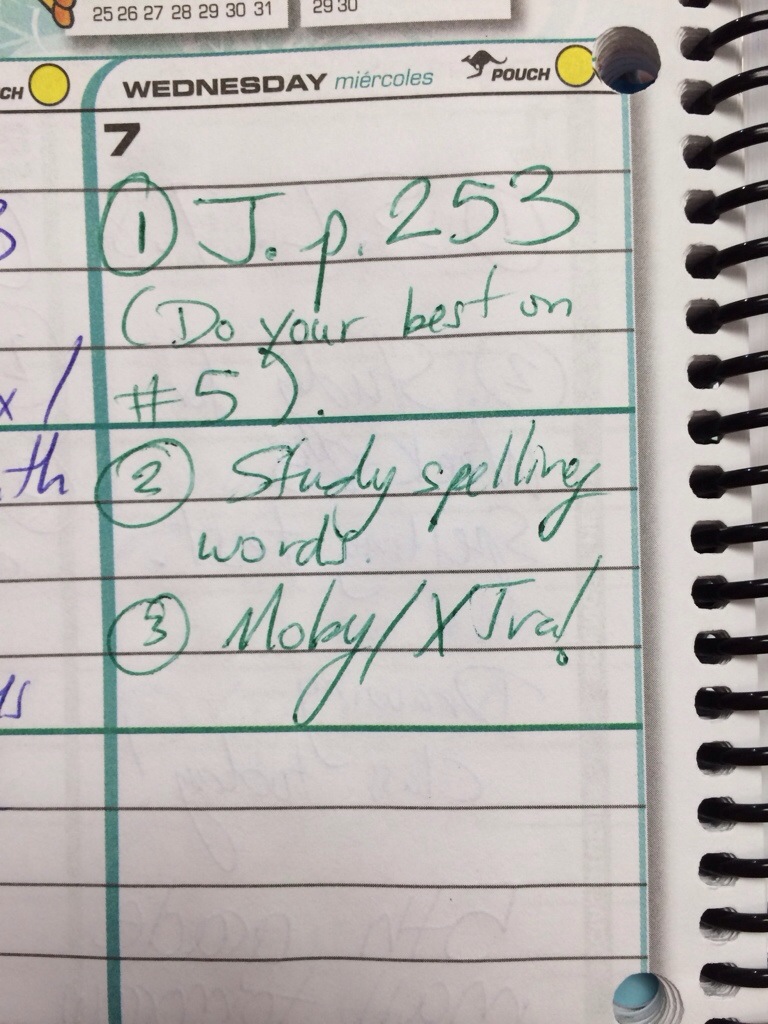 25 26 27 28 29 30 31
29 30
CH
WEDNESDAY miércoles POUCH
7
① J. p. 253
(Do your best on
#5).
② Study spelling
words.
③ Moby/XTra!
x/
th